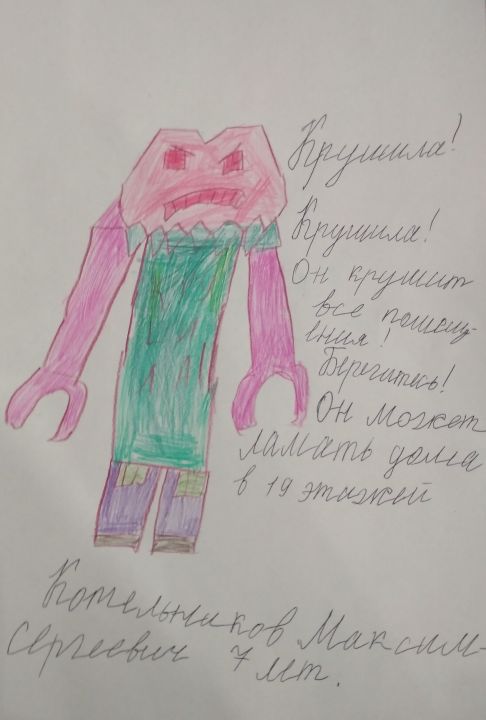 Крушила!
Крушила!
Он крушит
все помещ-
ения!
Берегитесь!
Он может
ламать дома
в 19 этажей
Котельников Максим
Сергеевич 7 лет.